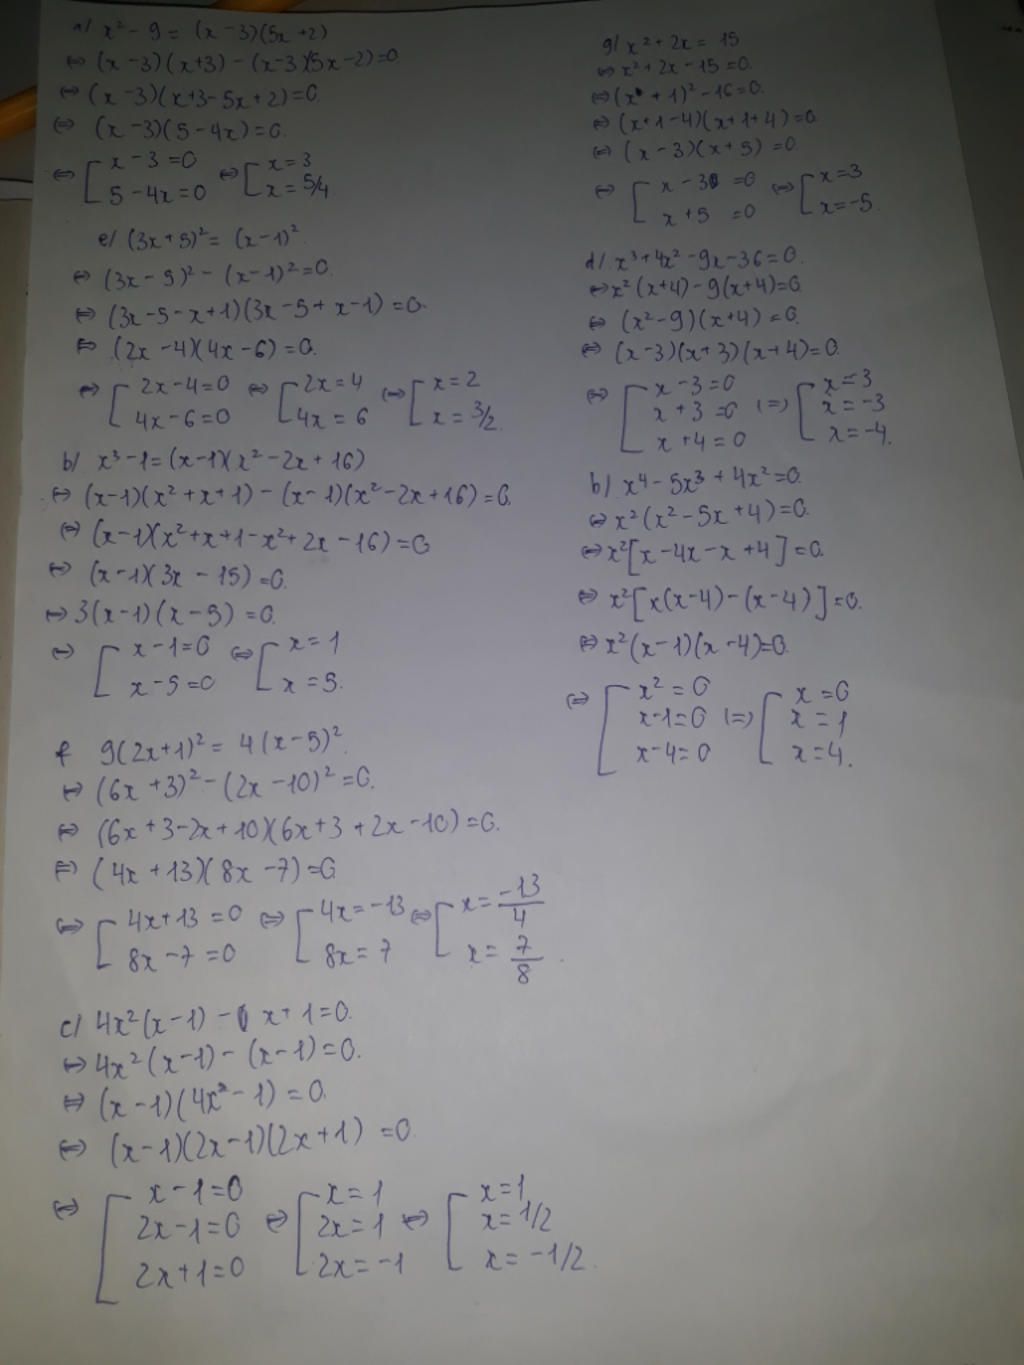 a/ x² - 9 = (x - 3)(5x + 2)
⇔ (x - 3)(x + 3) - (x - 3)(5x - 2) = 0.
⇔ (x - 3)(x + 3 - 5x + 2) = 0.
⇔ (x - 3)(5 - 4x) = 0.
⇔ [ x - 3 = 0 ⇔ [ x = 3
5 - 4x = 0 x = 5/4
e/ (3x + 5)² = (x - 1)².
⇔ (3x - 5)² - (x - 1)² = 0.
⇔ (3x - 5 - x + 1)(3x - 5 + x - 1) = 0.
⇔ (2x - 4)(4x - 6) = 0.
⇔ [ 2x - 4 = 0 ⇔ [ 2x = 4 ⇔ [ x = 2
4x - 6 = 0 4x = 6 x = 3/2.
b/ x³ - 1 = (x - 1)(x² - 2x + 16)
⇔ (x - 1)(x² + x + 1) - (x - 1)(x² - 2x + 16) = 0.
⇔ (x - 1)(x² + x + 1 - x² + 2x - 16) = 0
⇔ (x - 1)(3x - 15) = 0.
⇔ 3(x - 1)(x - 5) = 0.
⇔ [ x - 1 = 0 ⇔ [ x = 1
x - 5 = 0 x = 5.
f 9(2x + 1)² = 4(x - 5)².
⇔ (6x + 3)² - (2x - 10)² = 0.
⇔ (6x + 3 - 2x + 10)(6x + 3 + 2x - 10) = 0.
⇔ (4x + 13)(8x - 7) = 0
⇔ [ 4x + 13 = 0 ⇔ [ 4x = -13 ⇔ [ x = -13/4
8x - 7 = 0 8x = 7 x = 7/8.
c/ 4x²(x - 1) - x + 1 = 0.
⇔ 4x²(x - 1) - (x - 1) = 0.
⇔ (x - 1)(4x² - 1) = 0.
⇔ (x - 1)(2x - 1)(2x + 1) = 0.
⇔ [ x - 1 = 0 ⇔ [ x = 1 ⇔ [ x = 1
2x - 1 = 0 2x = 1 x = 1/2
2x + 1 = 0 2x = -1 x = -1/2.
g/ x² + 2x = 15
⇔ x² + 2x - 15 = 0.
⇔ (x + 1)² - 16 = 0.
⇔ (x + 1 - 4)(x + 1 + 4) = 0
⇔ (x - 3)(x + 5) = 0.
⇔ [ x - 3 = 0 ⇔ [ x = 3
x + 5 = 0 x = -5.
d/ x³ + 4x² - 9x - 36 = 0.
⇔ x²(x + 4) - 9(x + 4) = 0
⇔ (x² - 9)(x + 4) = 0.
⇔ (x - 3)(x + 3)(x + 4) = 0.
⇔ [ x - 3 = 0 (=) [ x = 3
x + 3 = 0 x = -3
x + 4 = 0 x = -4.
b) x⁴ - 5x³ + 4x² = 0.
⇔ x²(x² - 5x + 4) = 0.
⇔ x²[x - 4x - x + 4] = 0.
⇔ x²[x(x - 4) - (x - 4)] = 0.
⇔ x²(x - 1)(x - 4) = 0.
⇔ [ x² = 0 (=) [ x = 0
x - 1 = 0 x = 1
x - 4 = 0 x = 4.